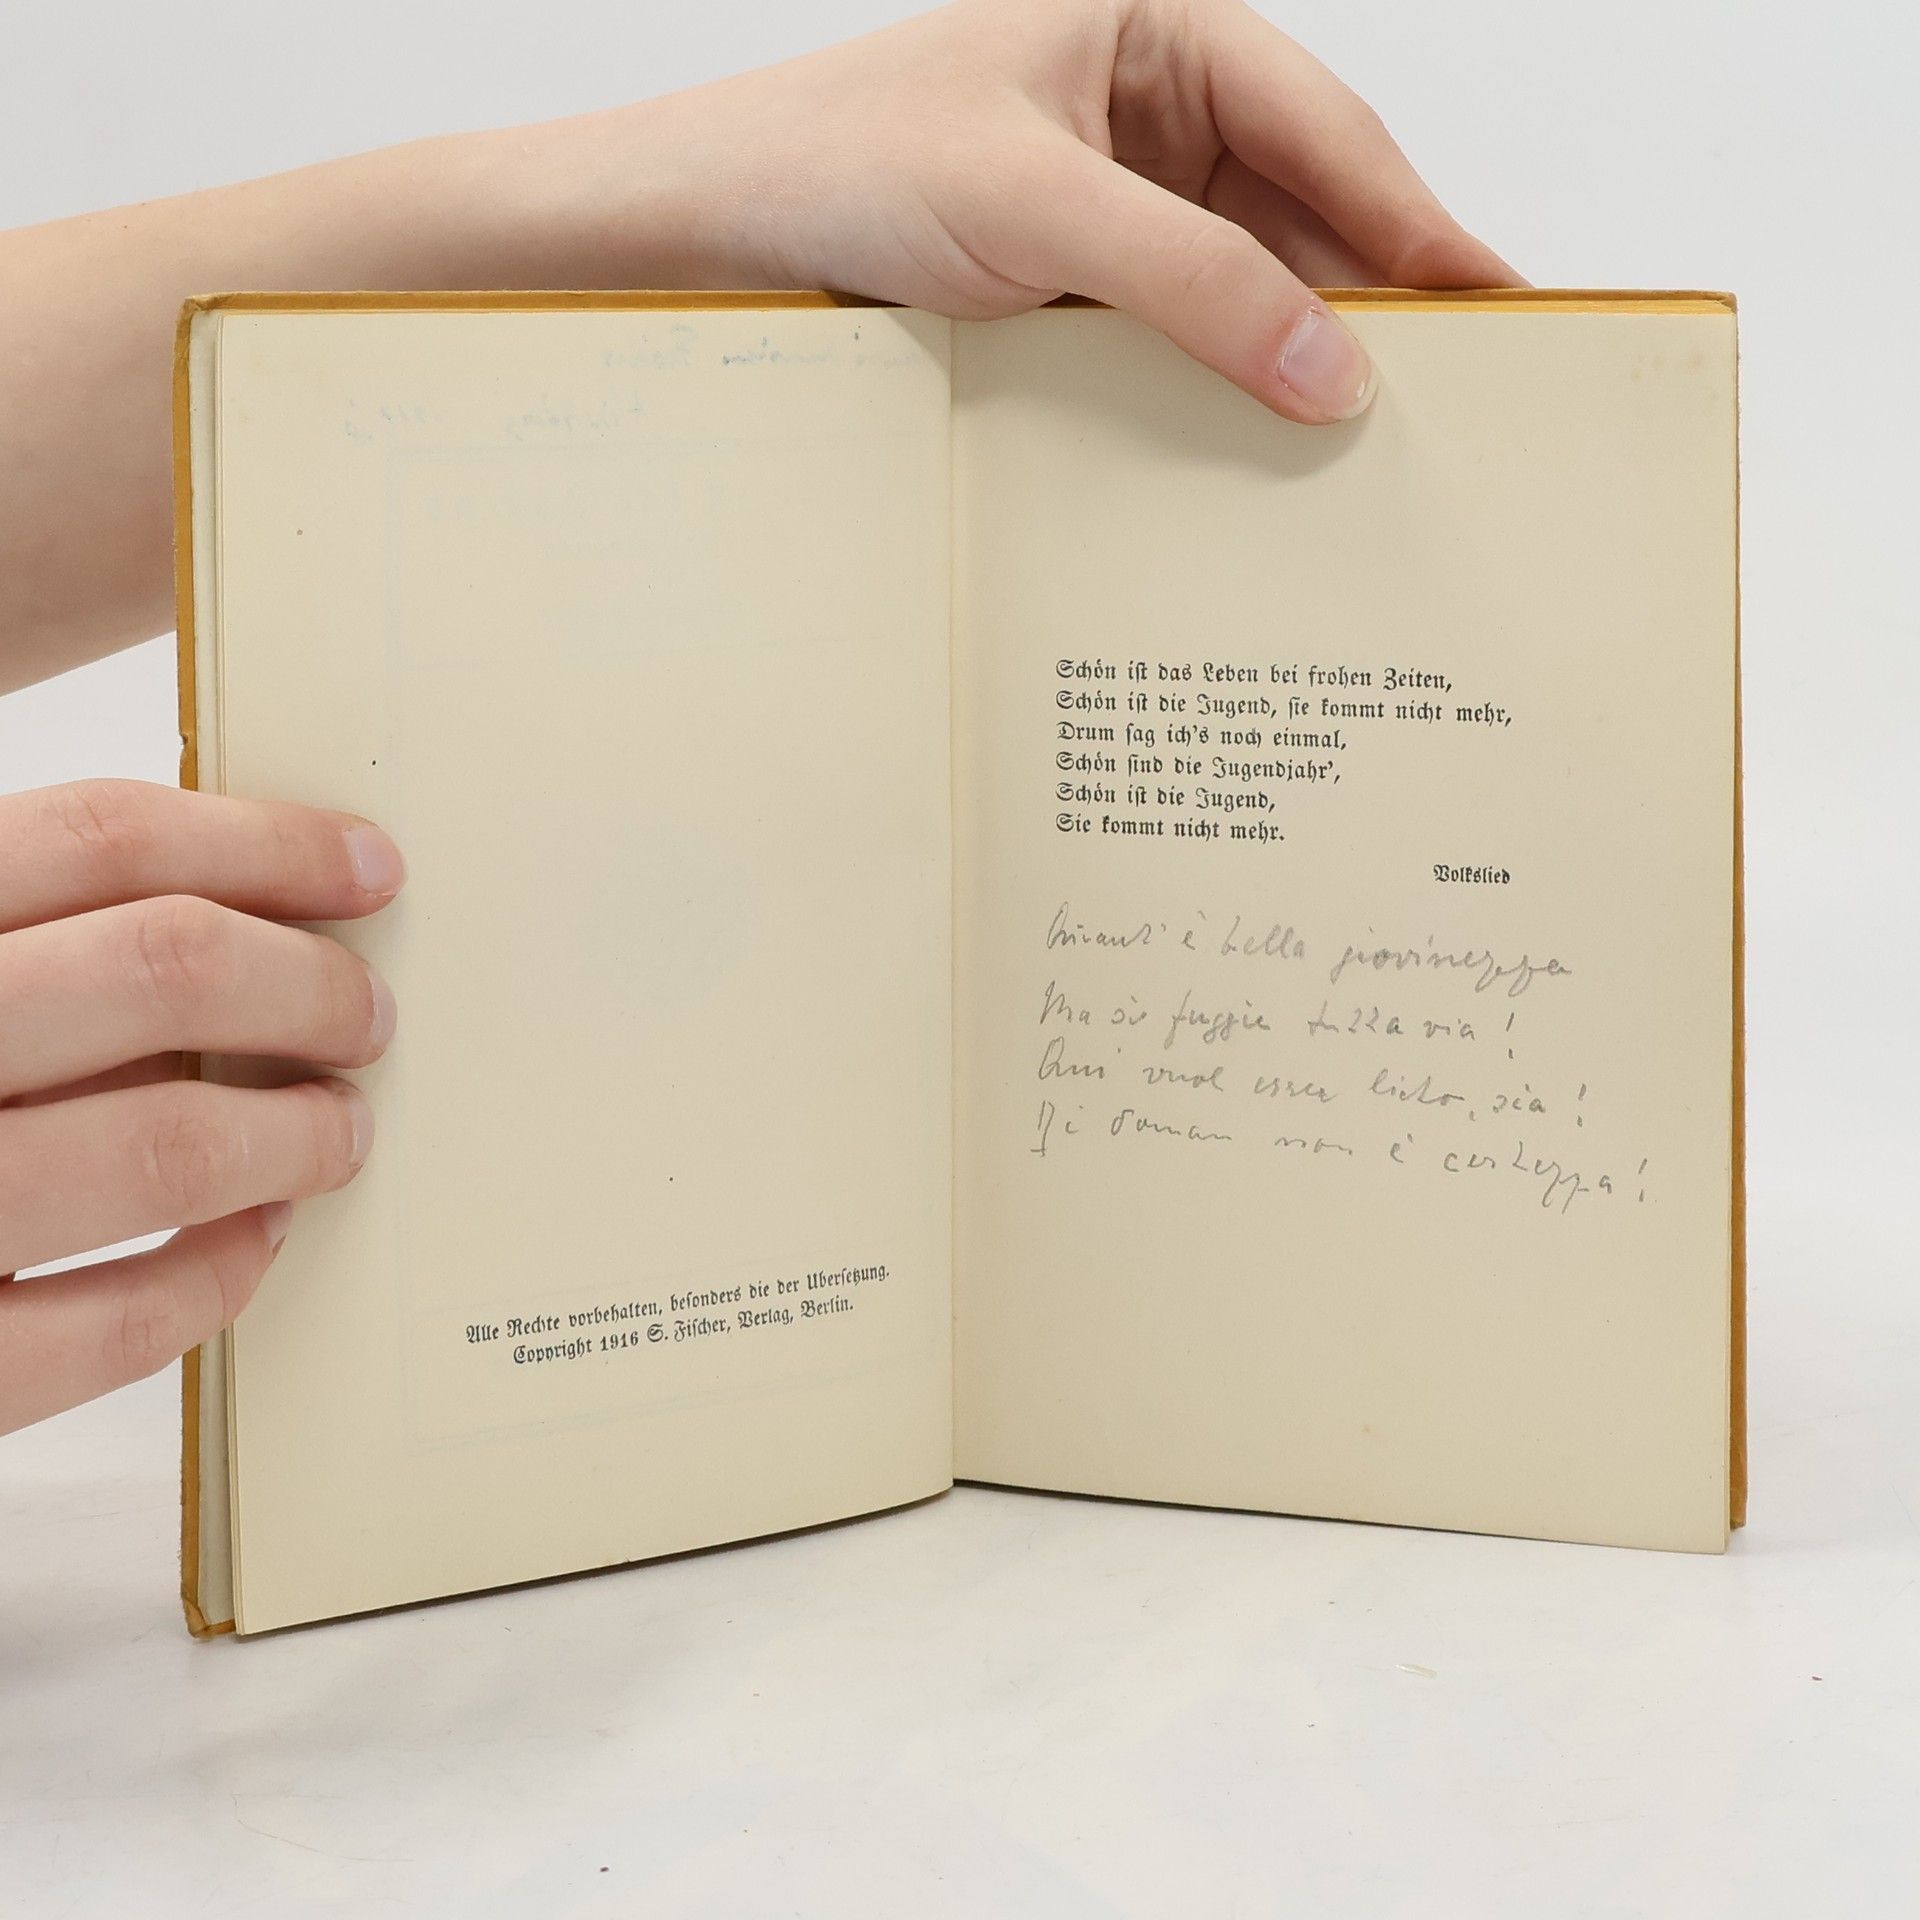 Alle Rechte vorbehalten, besonders die der Übersetzung.
Copyright 1916 S. Fischer, Verlag, Berlin.
Schön ist das Leben bei frohen Zeiten,
Schön ist die Jugend, sie kommt nicht mehr,
Drum sag ich's noch einmal,
Schön sind die Jugendjahr',
Schön ist die Jugend,
Sie kommt nicht mehr.
Volkslied
Quant' è bella giovinezza
Ma si fuggie tutta via!
Qui vuol esser lieto, sia!
Di doman non è certezza!